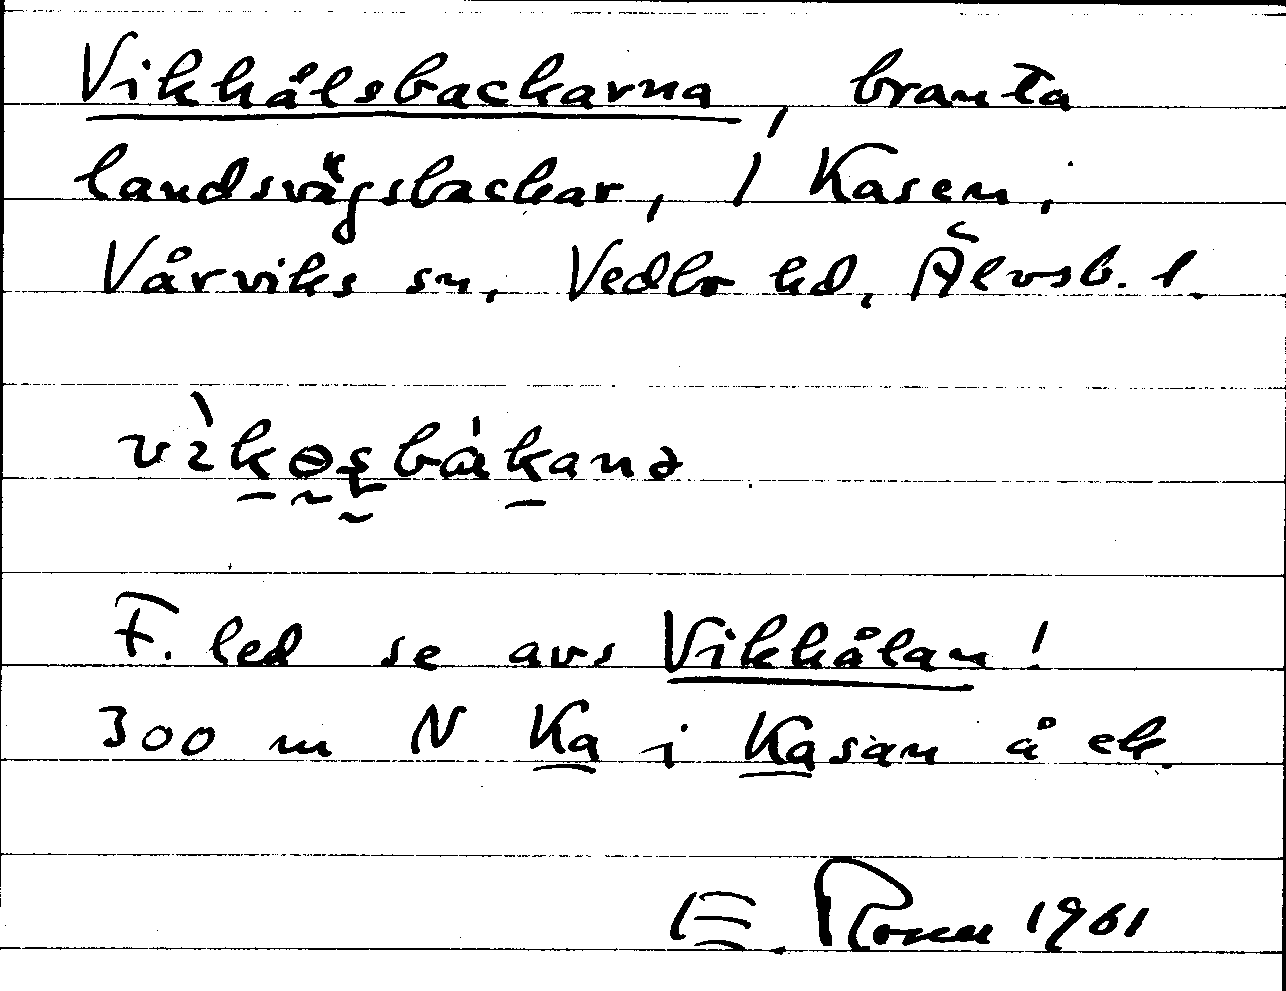 Vikhålsbackarna, branta
landsvägsbackar, / Kasen,
Vårviks sn, Vedbo hd, Älvsb. l.
F. led se avs Vikhålan!
300 m N Ka i Kasan å ek.
E. 1961